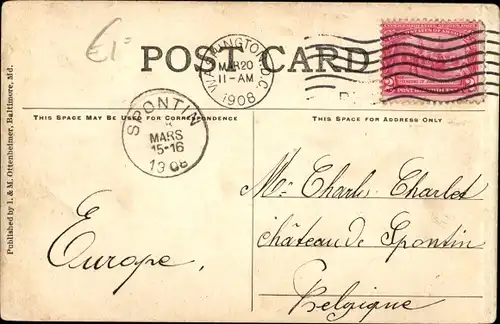 £1=
POST CARD
WASHINGTON, D.C.
MAR 20
11-AM
1908
2
THIS SPACE MAY BE USED FOR CORRESPONDENCE
THIS SPACE FOR ADDRESS ONLY
SPONTIN
MARS
15-16
1908
Published by I. & M. Ottenheimer, Baltimore, Md.
Europe.
Mr Charles Charlet
château de Spontin
Belgique